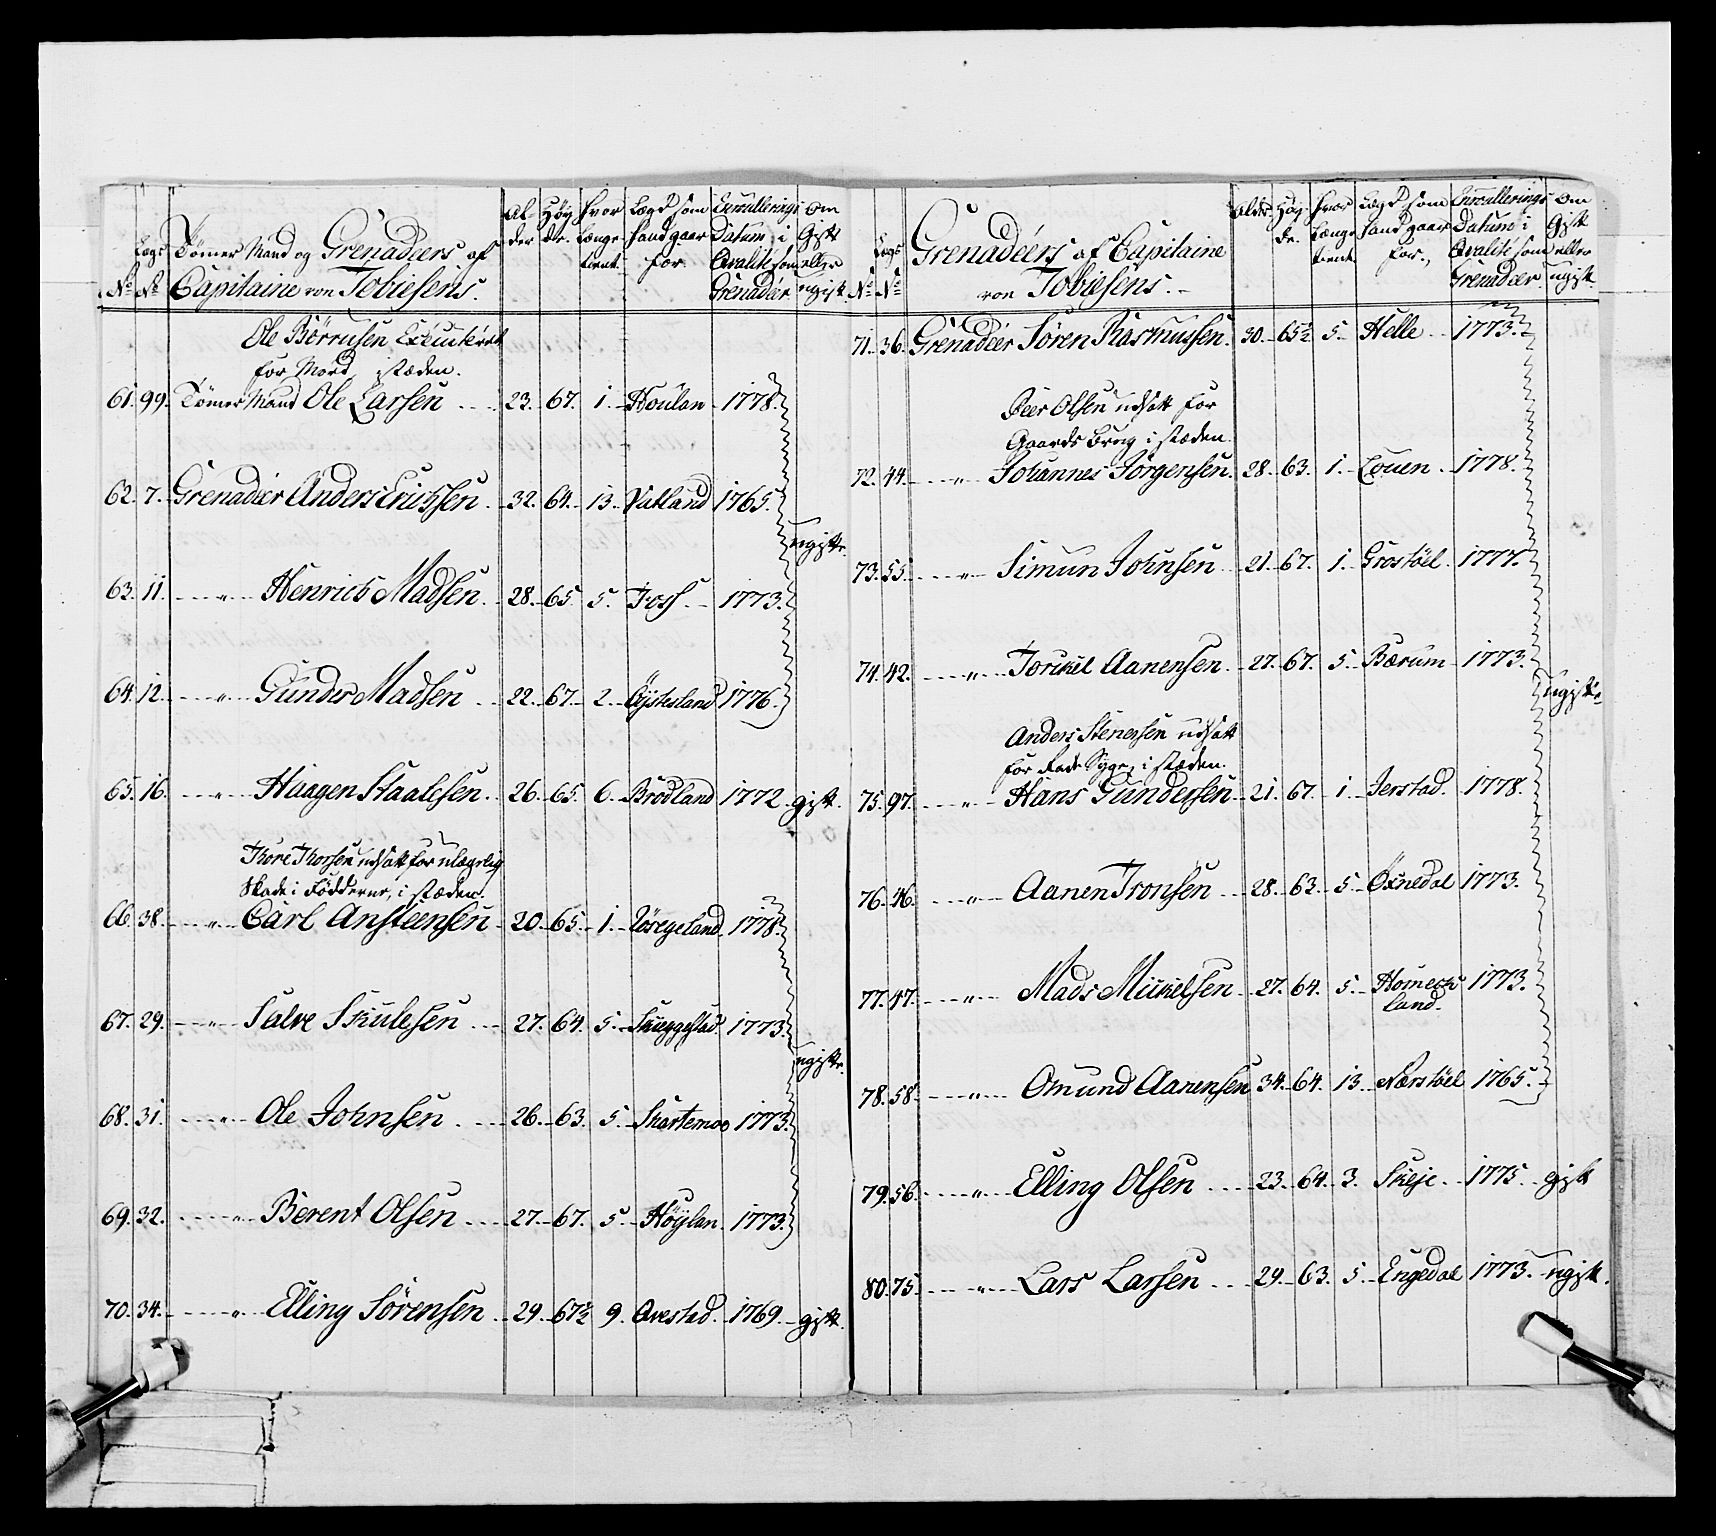 No Legs No Tömer Mand og Grenadeers af Capitaine von Tobiesens. Alder Høyde. hvor længe tient. Lægd som hand gaar for Enroullerings Datum i Qvalite som Grenadeer Om Gift eller ugift.
Ole Börrusen Executeret
for Mord, i stæden.
61. 99. Tömer Mand Ole Larsen 23. 67. 1. Houlan 1778.
62. 7. Grenadeer Anders Erichsen 32. 64. 13. Vatland 1765.
ugift.
63. 11. " Henrich Madsen 28. 65. 5. Foss 1773.
64. 12. " Gunder Madsen 22. 67. 2. Øjstesland 1776.
65. 16. " Haagen Staalesen 26. 65. 6. Brödland 1772 gift.
Thore Thorsen udsatt for ulægelig
Skade i Födderne, i stæden.
66. 38. " Carl Ansteensen 20. 65. 1. 1778.
67. 29. " Salve Skulesen 27. 64. 5. Skieggestad 1773.
ugift.
68. 31. " Ole Johnsen 26. 63. 5. Skartemoe 1773.
69. 32. " Berent Olsen 27. 67. 5. Höylan 1773.
70. 34. " Elling Sörensen 29. 67½ 9. Qvestad 1769. gift.
No Legs No Grenadéers af Capitaine von Tobiesens. Alder Høyde. hvor længe tient Lægd som hand gaar for. Enroullerings Datum i Qvalite som Grenadeer. Om Gift eller ugift
71. 36. Grenadéer Sören Rasmussen. 30. 65½ 5. Helle 1773.
Peer Olsen udsatt for
Gaards brug i stæden.
72. 44. " Johannes Jörgensen. 28. 63. 1. Louen 1778.
73. 55. " Simun Johnsen 21. 67. 1. Grostöel 1777.
74. 42. " Torikel Aanensen. 27. 67. 5. Bærum 1773.
ugift.
Anders Stenersen udsatt
for Rade Syge, i stæden.
75. 97. " Hans Gundersen 21. 67. 1. Jerstad. 1778.
76. 46. " Aanen Tronsen 28. 63. 5. Öxnedal 1773.
77. 47. " Mads Mickelsen 27. 64. 5. Homecks 1773.
land.
78. 58. " Omund Aanensen 34. 64. 13. Nærstöel 1765.
79. 56. " Elling Olsen 23. 64. 3. Skeje 1775 gift
80. 75. " Lars Larsen 29. 63. 5. Engedal 1773. ugift.